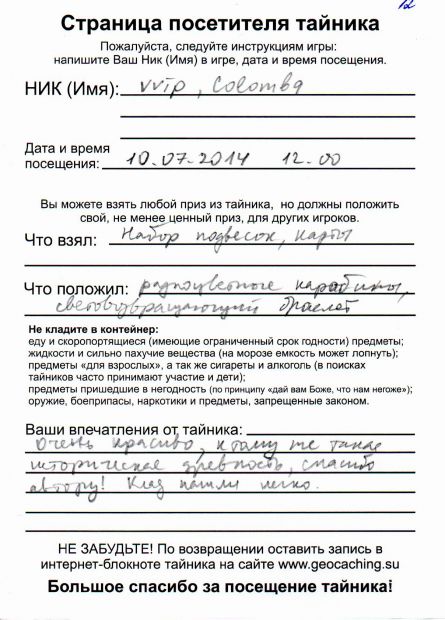 12
Страница посетителя тайника
Пожалуйста, следуйте инструкциям игры:
напишите Ваш Ник (Имя) в игре, дата и время посещения.
НИК (Имя): vvip, Colomba
Дата и время
посещения: 10.07.2014 12.00
Вы можете взять любой приз из тайника, но должны положить
свой, не менее ценный приз, для других игроков.
Что взял: Набор подвесок, карты
Что положил: разноцветные карабины,
световозвращающий браслет
Не кладите в контейнер:
еду и скоропортящиеся (имеющие ограниченный срок годности) предметы;
жидкости и сильно пахучие вещества (на морозе емкость может лопнуть);
предметы «для взрослых», а так же сигареты и алкоголь (в поисках
тайников часто принимают участие и дети);
предметы пришедшие в негодность (по принципу «дай вам Боже, что нам негоже»);
оружие, боеприпасы, наркотики и предметы, запрещенные законом.
Ваши впечатления от тайника:
Очень красиво, к тому же такая
историческая древность, спасибо
автору! Клад нашли легко.
НЕ ЗАБУДЬТЕ! По возвращении оставить запись в
интернет-блокноте тайника на сайте www.geocaching.su
Большое спасибо за посещение тайника!